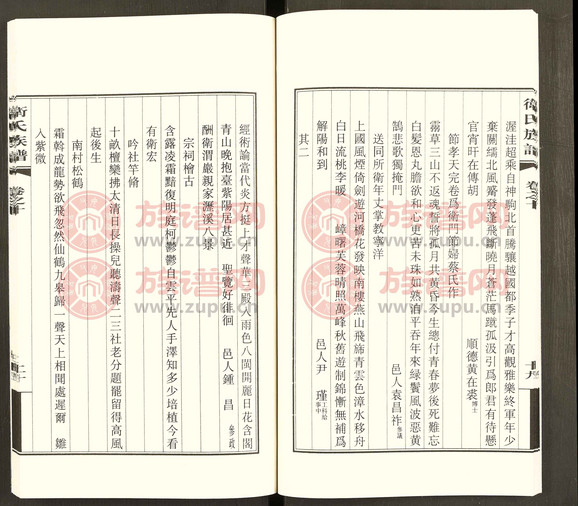 衛氏族譜
渥洼超乘自神駒北首騰驤越國都季子才高觀雅樂終軍年少
棄關繻北風
官宵旰在傳胡
順德黃在裘博士
節孝天完卷爲衛門節婦蔡氏作
霧草三山不返魂誓將孤月共黃昏今生總付青春夢後死難忘
白髮恩丸膽欲和心更苦未珠如然泊平吞年來綠鬢風波惡黃
鵠悲歌獨掩門
邑人袁昌祚參議
送同所衛年丈掌教寧洋
上國風煙倚劍遊河橋花發映南樓燕山飛旆青雲色漳水移舟
白日流桃李暖
嶂曙芙蓉晴照萬峰秋舊遊制錦慚無補爲
解陽和到
邑人尹瑾工科給事中
其二
經術論當代炎方挺上才聲華三殿入雨色八閩開麗日花含閣
青山晚抱臺紫陽居甚近
聖覽好徘徊
邑人鍾昌參政
酬衛渭巖親家灋溪八景
宗祠檜古
含露凌霜黯復明庭柯鬱鬱自雲平先人手澤知多少培植今看
有衛宏
吟社竿脩
十畝檀欒拂太清日長操兒聽濤聲二三社老分題罷留得高風
起後生
南村松鶴
霜斡成龍勢欲飛忽然仙鶴九皋歸一聲天上相聞處遲爾
雛
入紫微
衛氏族譜
族譜网
www.zupu.cn
族譜网
www.zupu.cn